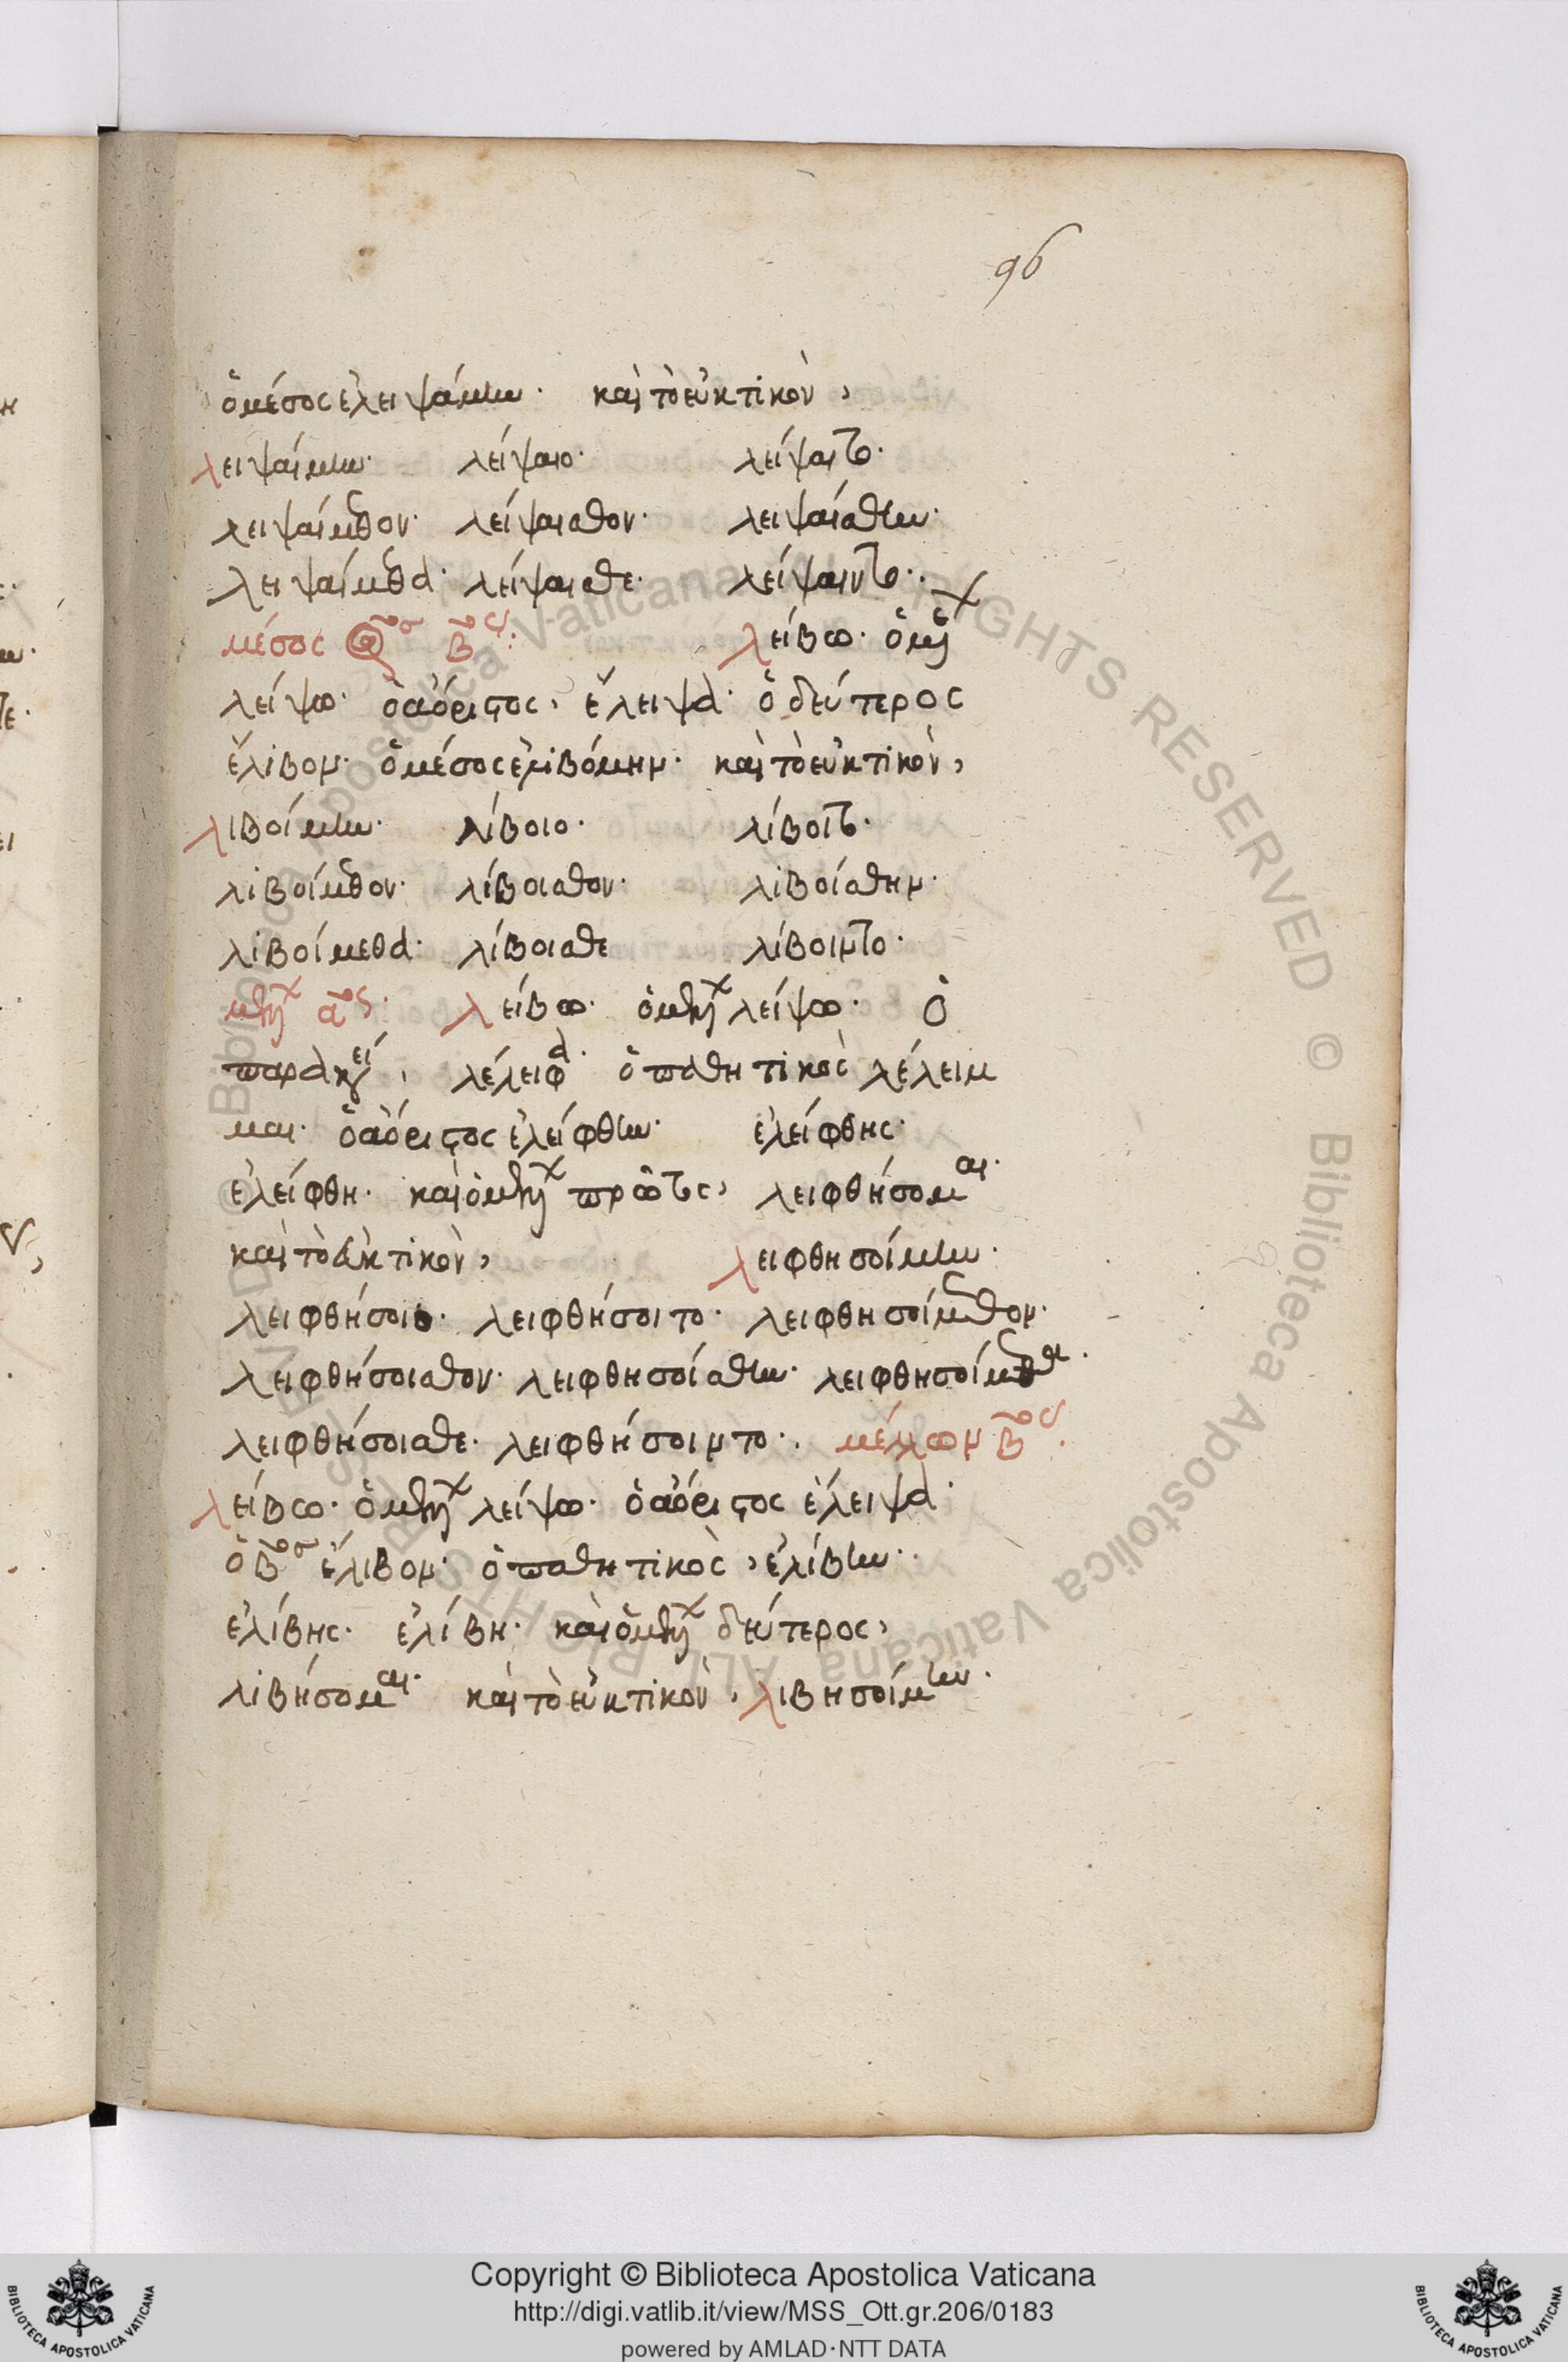 96
ὁ μέσος ἐλειψάμην· καὶ τὸ εὐκτικὸν,
λειψαίμην· λείψαιο· λείψαιτο·
λειψαίμεθον· λείψαισθον· λειψαίσθην·
λειψαίμεθα· λείψαισθε· λείψαιντο·
μέσος β̅ος· λείβω· ὁ μέλλ
λείψω· ὁ ἀόριστος, ἔλειψα· ὁ δεύτερος
ἔλιβον· ὁ μέσος ἐλιβόμην· καὶ τὸ εὐκτικὸν,
λιβοίμην· λίβοιο· λίβοιτο·
λιβοίμεθον· λίβοισθον· λιβοίσθην·
λιβοίμεθα· λίβοισθε λίβοιντο·
μελλ α̅ος· λείβω· ὁ μελλ λείψω· Ὁ
παρακεί, λέλειφα· ὁ παθητικὸς λέλειμ
μαι· ὁ ἀόριστος ἐλείφθην· ἐλείφθης·
ἐλείφθη· καὶ ὁ μελλ πρῶτος, λειφθήσομαι·
καὶ τὸ εὐκτικὸν, λειφθησοίμην·
λειφθήσοιο· λειφθήσοιτο· λειφθησοίμεθον·
λειφθήσοισθον· λειφθησοίσθην· λειφθησοίμεθα·
λειφθήσοισθε· λειφθήσοιντο· μέλλων β̅ος·
λείβω· ὁ μελλ λείψω· ὁ ἀόριστος ἔλειψα·
ὁ β̅ος ἔλιβον· ὁ παθητικὸς, ἐλίβην·
ἐλίβης· ἐλίβη· καὶ ὁ μελλ δεύτερος,
λιβήσομαι· καὶ τὸ εὐκτικὸν, λιβησοίμην·
Copyright © Biblioteca Apostolica Vaticana
http://digi.vatlib.it/view/MSS_Ott.gr.206/0183
powered by AMLAD·NTT DATA
BIBLIOTECA APOSTOLICA VATICANA
BIBLIOTECA APOSTOLICA VATICANA
© Biblioteca Apostolica Vaticana ALL RIGHTS RESERVED © Biblioteca Apostolica Vaticana ALL RIGHTS RESERVED